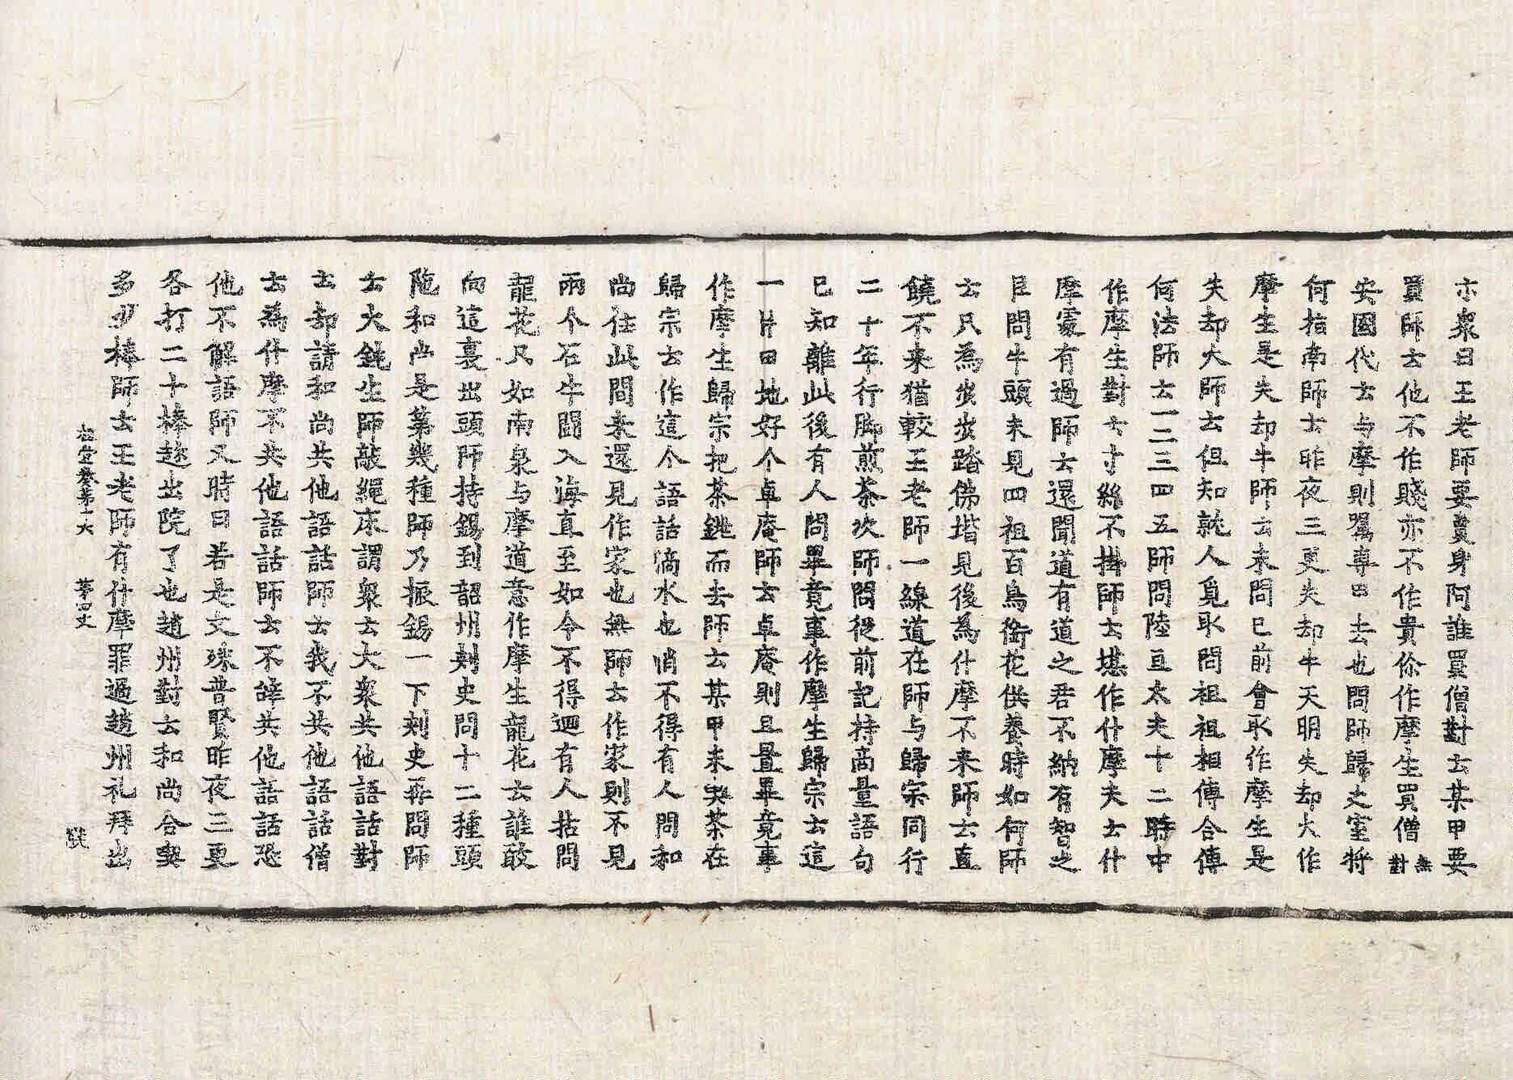 示衆曰王老師要賣身阿誰買僧對云某甲要
買師云他不作賤亦不作貴你作摩生買僧無對
安國代云与摩則屬專甲去也問師歸丈室將
何指南師云昨夜三更失却牛天明失却火作
摩生是失却牛師云未問已前會取作摩生是
失却火師云但知就人覓取問祖祖相傳合傳
何法師云一二三四五師問陸亘大夫十二時中
作摩生對云寸絲不掛師云堪作什摩夫云什
摩處有過師云還聞道有道之君不納有智之
臣問牛頭未見四祖百鳥銜花供養時如何師
云只為步步踏佛堦見後為什摩不来師云直
饒不来猶較王老師一線道在師与歸宗同行
二十年行脚煎茶次師問從前記持商量語句
已知離此後有人問畢竟事作摩生歸宗云這
一片田地好个卓庵師云卓庵則且置畢竟事
作摩生歸宗把茶銚而去師云某甲未喫茶在
歸宗云作這个語話滴水也消不得有人問和
尚住此間来還見作家也無師云作家則不見
兩个石牛闘入海直至如今不得迴有人拈問
龍花只如南泉与摩道意作摩生龍花云誰敢
向這裏出頭師持錫到韶州刾史問十二種頭
陁和尚是第幾種師乃振錫一下刾史再問師
云大鈍生師敲繩床謂衆云大衆共他語話對
云却請和尚共他語話師云我不共他語話僧
云為什摩不共他語話師云不辞共他語話恐
他不解語師又時曰若是文殊普賢昨夜三更
各打二十棒趂出院了也趙州對云和尚合喫
多少棒師云王老師有什摩罪過趙州礼拜出
祖堂卷第十六　第四丈